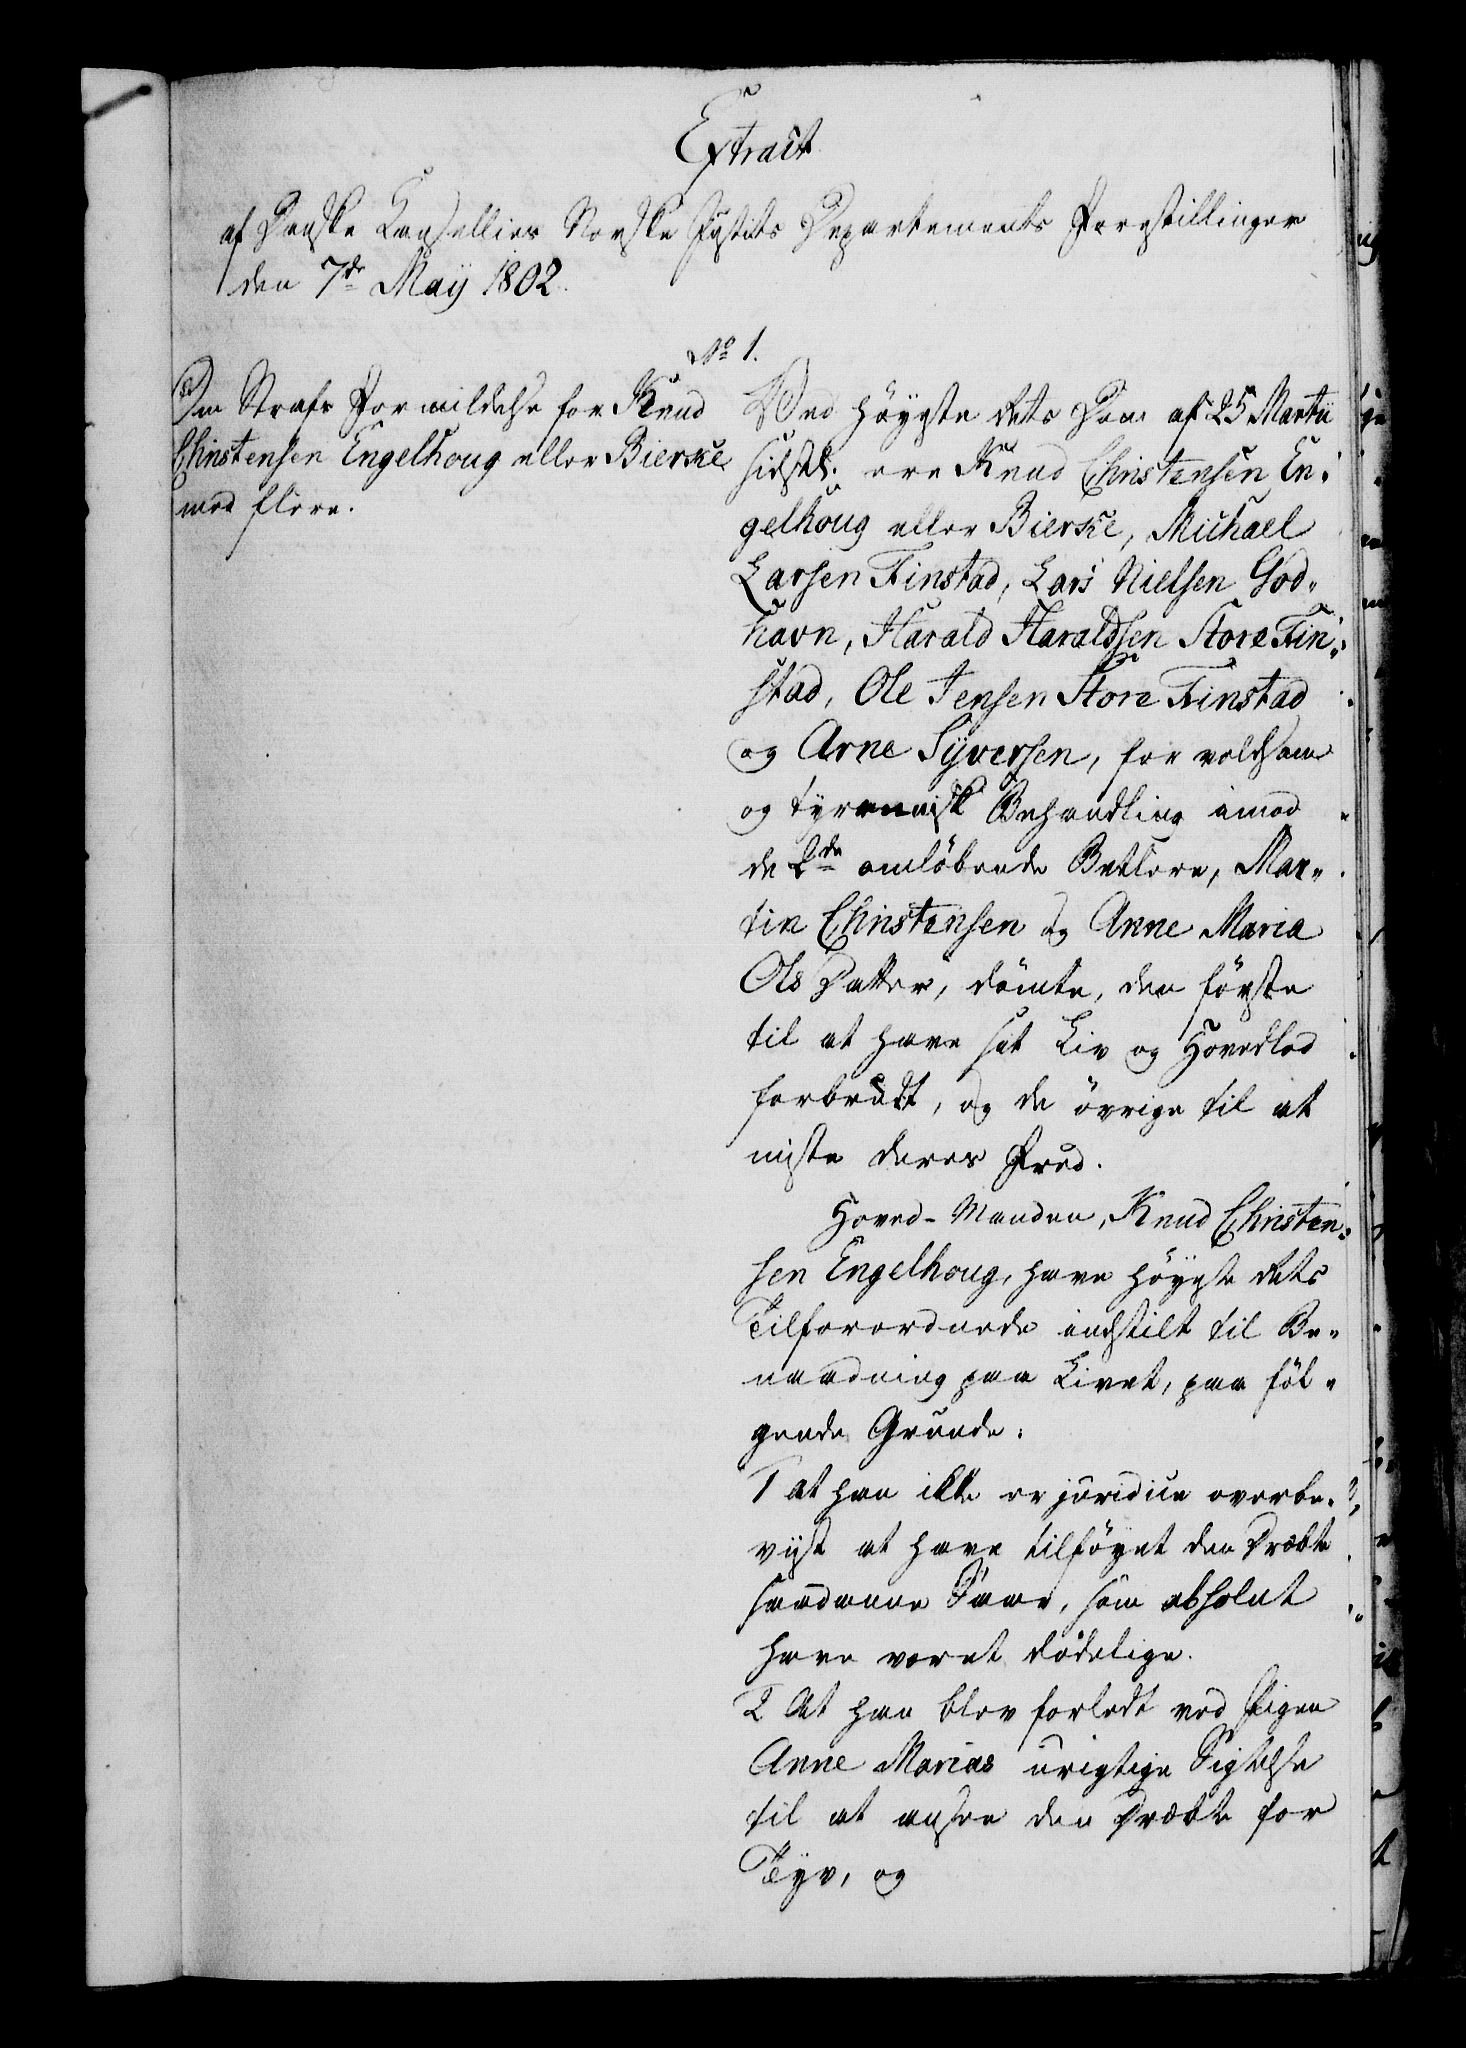 Extract
af Danske Cancellies Norske Justits Departements Forestillinger
den 7de Maij 1802.
No 1.
Om Strafs Formildelse for Knud
Christensen Engelhoug eller Bierke
med flere.
Ved Höyeste Rets Dom af 25 Martii
sidstl. ere Knud Christensen En-
gelhoug eller Bierke, Michael
Larsen Finstad, Lars Nielsen God-
havn, Harald Haraldsen Store Fin-
stad, Ole Jensen Store Finstad
og Arne Syversen, for voldsom
og tyrannisk Behandling imod
de 2de omløbende Betlere, Mar-
tin Christensen og Anne Maria
Ols Datter, dömte, den förste
til at have sit Liv og Hovedlod
forbrudt, og de övrige til at
miste deres Fred.
Hoved-Manden, Knud Christen-
sen Engelhoug, have Höyeste Rets
Tilforordnede indstilt til Be-
naadning paa Livet, paa föl-
gende Grunde:
1 at han ikke er juridice overbe-
viist at have tilföyet den Dræbte
saadanne Saar, som absolut
have været dödelige.
2 At han blev forledt ved Pigen
Anne Marias urigtige Sigtelse
til at ansee den Dræbte for
Tyv, og